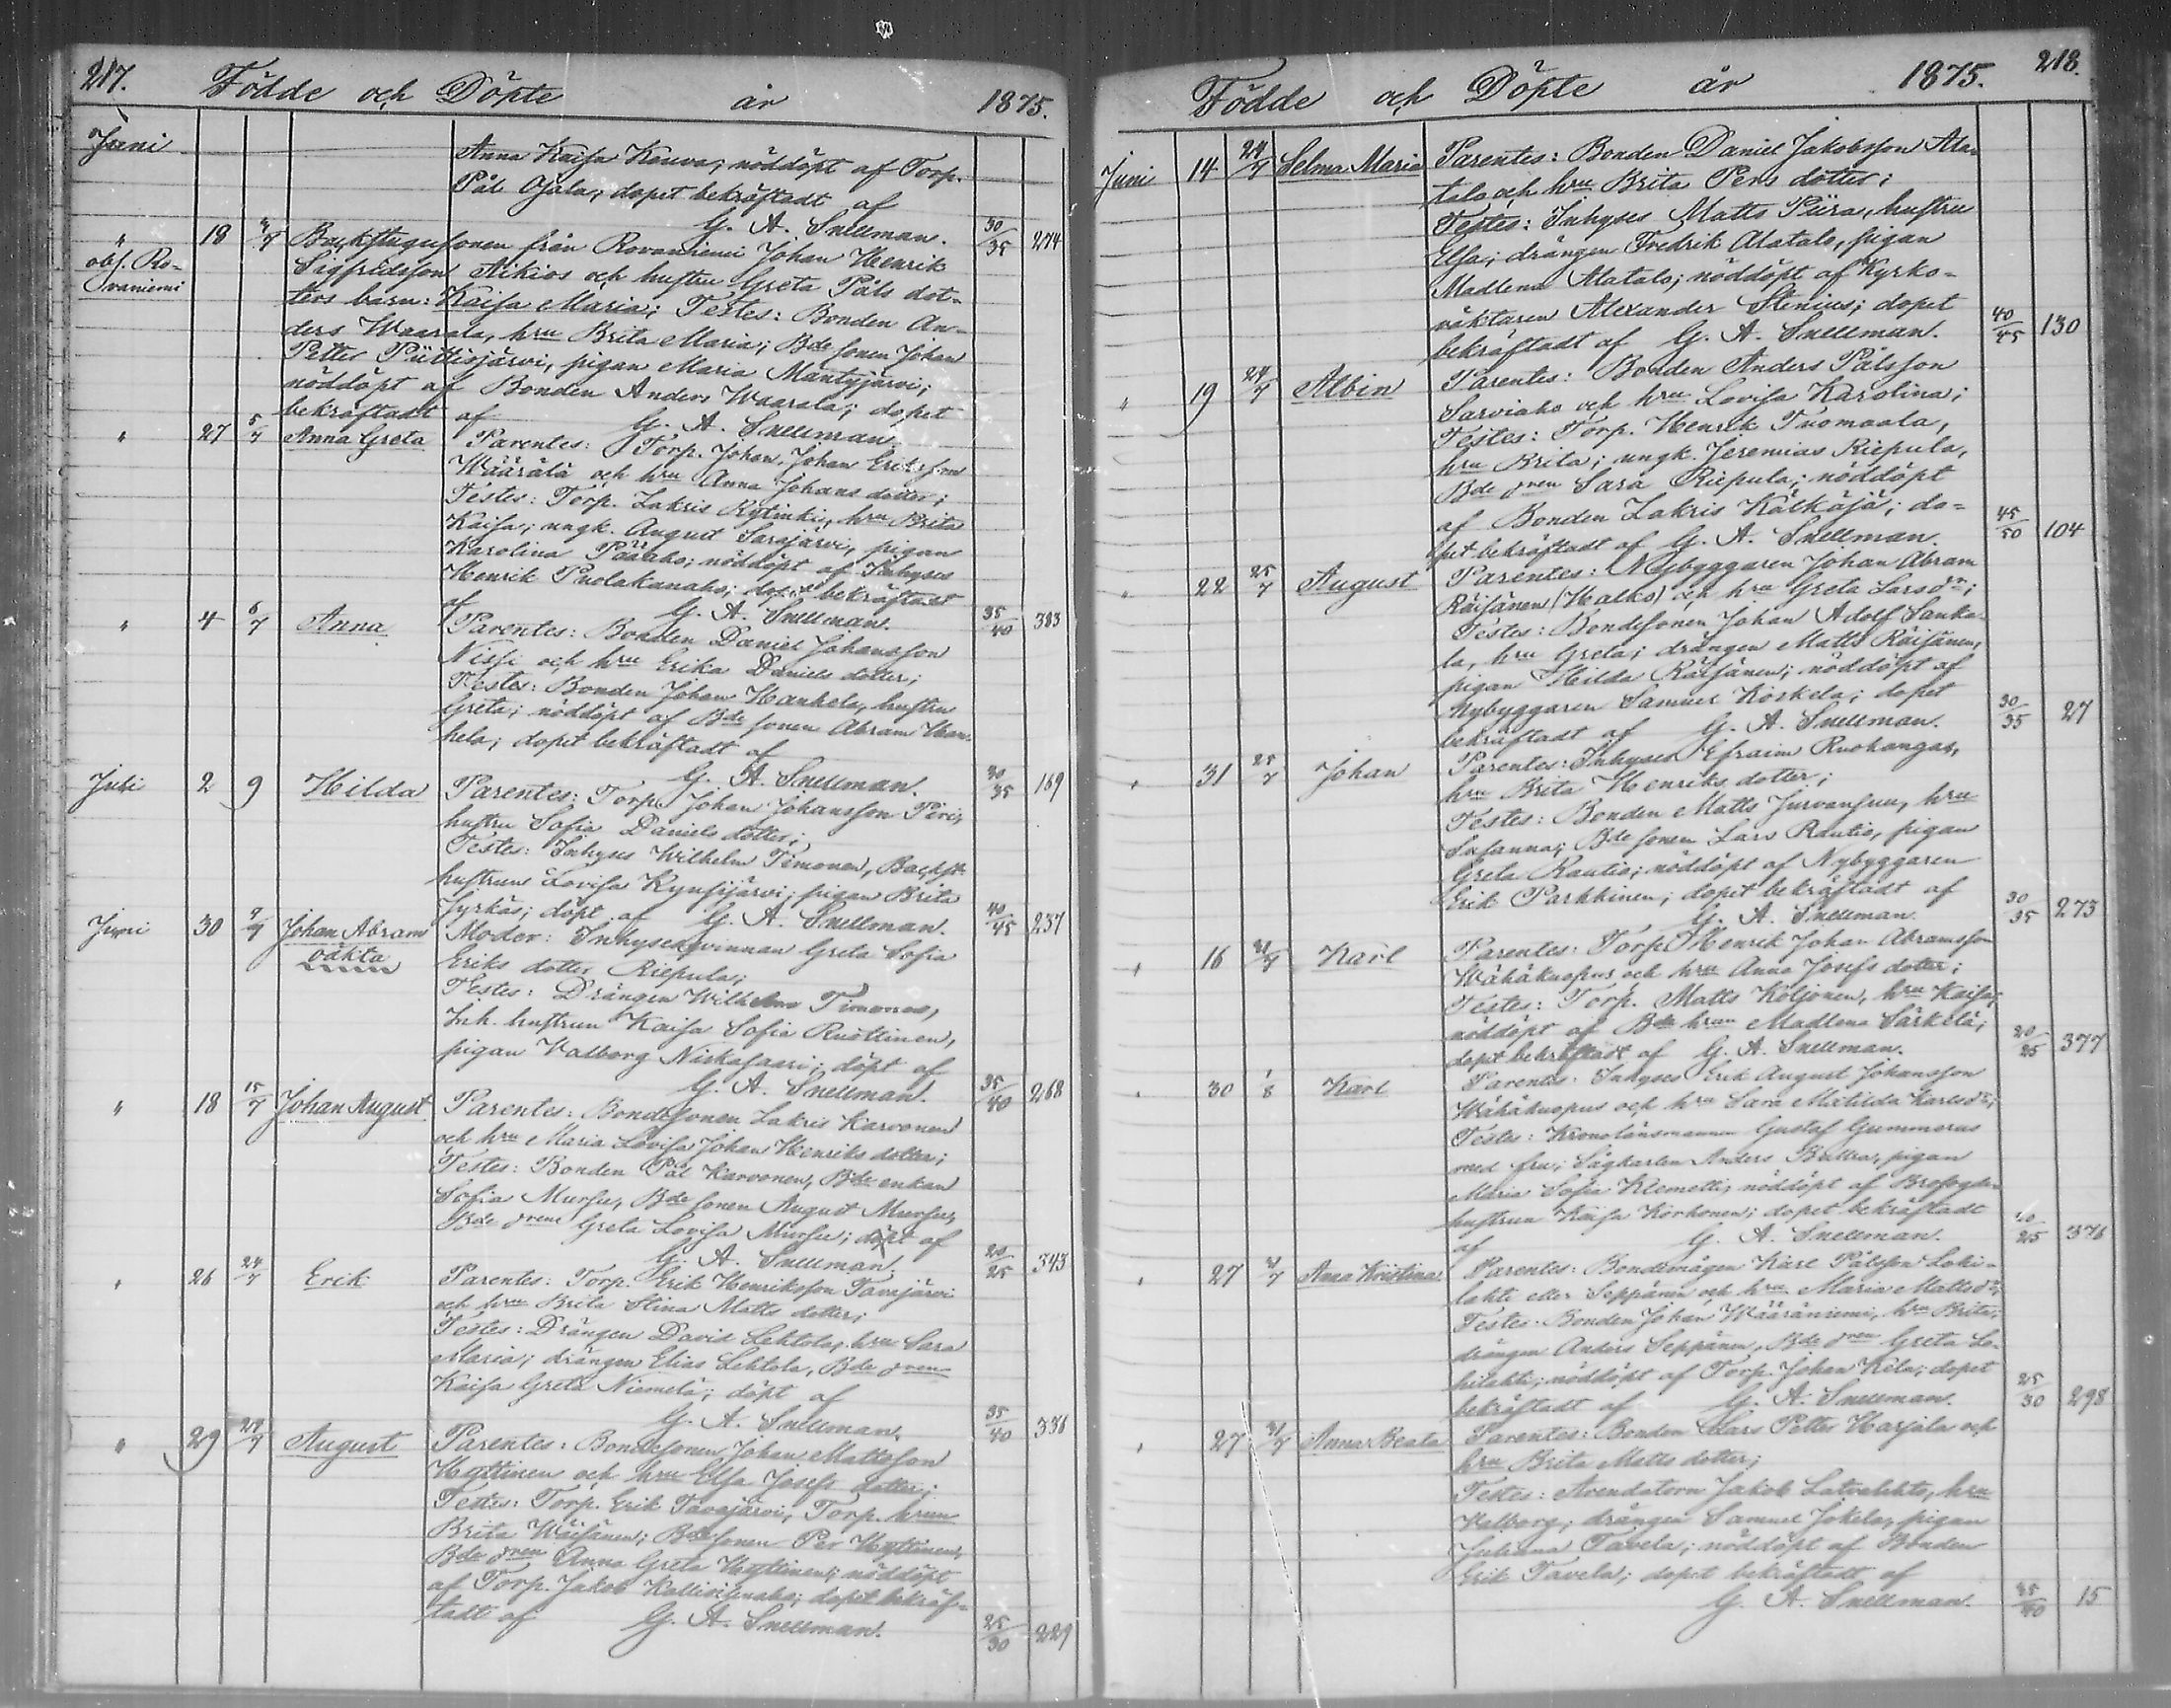 217. Födde och Döpte år 1875.
Juni Anna Kaisa Kauva; nöddöpt af Torp.
Pål Ojala; dopet bekräftadt af
G. A. Snellman. 30/35 274
" 18 4/7 Backstugusonen från Rovaniemi Johan Henrik
obs. Ro-
vaniemi
Sigfridsson Aikios och hustru Greta Påls dot-
ters barn: Kaisa Maria; Testes: Bonden An-
ders Waarala, hru Brita Maria; Bde sonen Johan
Petter Piittisjärvi, pigan Maria Mäntyjärvi;
nöddöpt af Bonden Anders Waarala; dopet
bekräftadt af G. A. Snellman.
" 27 5/7 Anna Greta Parentes: Torp. Johan Johan Eriksson
Wäärälä och hru Anna Johans dotter;
Testes: Torp. Zakris Kytinki, hru Brita
Kaisa; ungk. August Sarajärvi, pigan
Karolina Pääaho; nöddöpt af Inhyses
Henrik Puolakanaho; dopet bekräftadt
af G. A. Snellman. 35/40 383
" 4 6/7 Anna Parentes: Bonden Daniel Johansson
Nissi och hru Erika Daniels dotter;
Testes: Bonden Johan Hankela, hustru
Greta; nöddöpt af Bde sonen Abram Han-
kela; dopet bekräftadt af
G. A. Snellman. 30/35 169
Juli 2 9 Hilda Parentes: Torp. Johan Johansson Piri,
hustru Sofia Daniels dotter;
Testes: Inhyses Wilhelm Timonen, Backst.
hustrun Lovisa Kynsijärvi; pigan Brita
Jyrkäs; döpt af G. A. Snellman. 40/45 237
Juni 30 9/7 Johan Abram
oäkta
Moder: Inhyseqvinnan Greta Sofia
Eriks dotter Riepula;
Testes: Drängen Wilhelm Timonen,
Inh. hustrun Kaisa Sofia Ruottinen,
pigan Valborg Niskasaari; döpt af
G. A. Snellman. 35/40 268
" 18 15/7 Johan August Parentes: Bondesonen Zakris Karvonen
och hru Maria Lovisa Johan Henriks dotter;
Testes: Bonden Pål Karvonen, Bde enkan
Sofia Mursu, Bde sonen August Mursu,
Bde dren Greta Lovisa Mursu; döpt af
G. A. Snellman. 20/25 343
" 26 24/7 Erik Parentes: Torp. Erik Henriksson Tavajärvi
och hru Brita Stina Matts dotter;
Testes: Drängen David Lehtola, hru Sara
Maria; drängen Elias Lehtola, Bde dren
Kaisa Greta Niemelä; döpt af
G. A. Snellman. 35/40 336
" 29 24/7 August Parentes: Bondesonen Johan Mattsson
Hyttinen och hru Elsa Josefs dotter;
Testes: Torp. Erik Tavajärvi, Torp. hrun
Brita Wäisänen; Bde sonen Per Hyttinen,
Bde dren Anna Greta Hyttinen; nöddöpt
af Torp. Jakob ; dopet bekräf-
tadt af G. A. Snellman. 25/30 229
Födde och Döpte år 1875. 218.
Juni 14 24/7 Selma Maria Parentes: Bonden Daniel Jakobsson Ala-
talo och hru Brita Pers dotter;
Testes: Inhyses Matts Piira, hustru
Elsa; drängen Fredrik Alatalo, pigan
Madlena Alatalo; nöddöpt af Kyrko-
väktaren Alexander Stenius; dopet
bekräftadt af G. A. Snellman. 40/45 130
" 19 24/7 Albin Parentes: Bonden Anders Pålsson
Sarviaho och hru Lovisa Karolina;
Testes: Torp. Henrik Tuomaala,
hru Brita; ungk. Jeremias Riepula,
Bde dren Sara Riepula; nöddöpt
af Bonden Zakris Kälkäjä; do-
pet bekräftadt af G. A. Snellman. 45/50 104
" 22 25/7 August Parentes: Nybyggaren Johan Abram
Räisänen (Halko) och hru Greta Lars dr;
Testes: Bondesonen Johan Adolf Sanka-
la, hru Greta; drängen Matts Räisänen,
pigan Hilda Räisänen; nöddöpt af
Nybyggaren Samuel Koskela; dopet
bekräftadt af G. A. Snellman. 30/35 27
" 31 25/7 Johan Parentes: Inhyses Efraim Ruokangas,
hru Brita Henriks dotter;
Testes: Bonden Matts Jurvansuu, hru
Susanna; Bde sonen Lars Rautio, pigan
Greta Rautio; nöddöpt af Nybyggaren
Erik Parkkinen; dopet bekräftadt af
G. A. Snellman. 30/35 273
" 16 31/7 Karl Parentes: Torp. Henrik Johan Abramsson
Wähäkuopus och hru Anna Josefs dotter;
Testes: Torp. Matts Koljonen, hru Kaisa;
nöddöpt af Bde hrun Madlena Särkelä;
dopet bekräftadt af G. A. Snellman. 20/25 377
" 30 1/8 Karl Parentes: Inhyses Erik August Johansson
Wähäkuopus och hru Sara Matilda Karls dr;
Testes: Kronolänsmannen Gustaf Gummerus
med fru; Sågkarlen Anders , pigan
Maria Sofia Klemetti; nöddöpt af
hustrun Kaisa Korhonen; dopet bekräftadt
af G. A. Snellman. 20/25 376
" 27 31/7 Anna Kristina Parentes: Bondemågen Karl Pålsson Loki-
lahti eller Seppänen och hru Maria Matts dr;
Testes: Bonden Johan Wääräniemi, hru Brita;
drängen Anders Seppänen, Bde dren Greta Lo-
kilahti; nöddöpt af Torp. Johan Kela; dopet
bekräftadt af G. A. Snellman. 25/30 298
" 27 31/7 Anna Beata Parentes: Bonden Lars Petter Harjala och
hru Brita Matts dotter;
Testes: Arendatorn Jakob Latvalehto, hru
Valborg; drängen Samuel Jokela, pigan
Juliana Tavela; nöddöpt af Bonden
Erik Tavela; dopet bekräftadt af
G. A. Snellman. 35/40 15